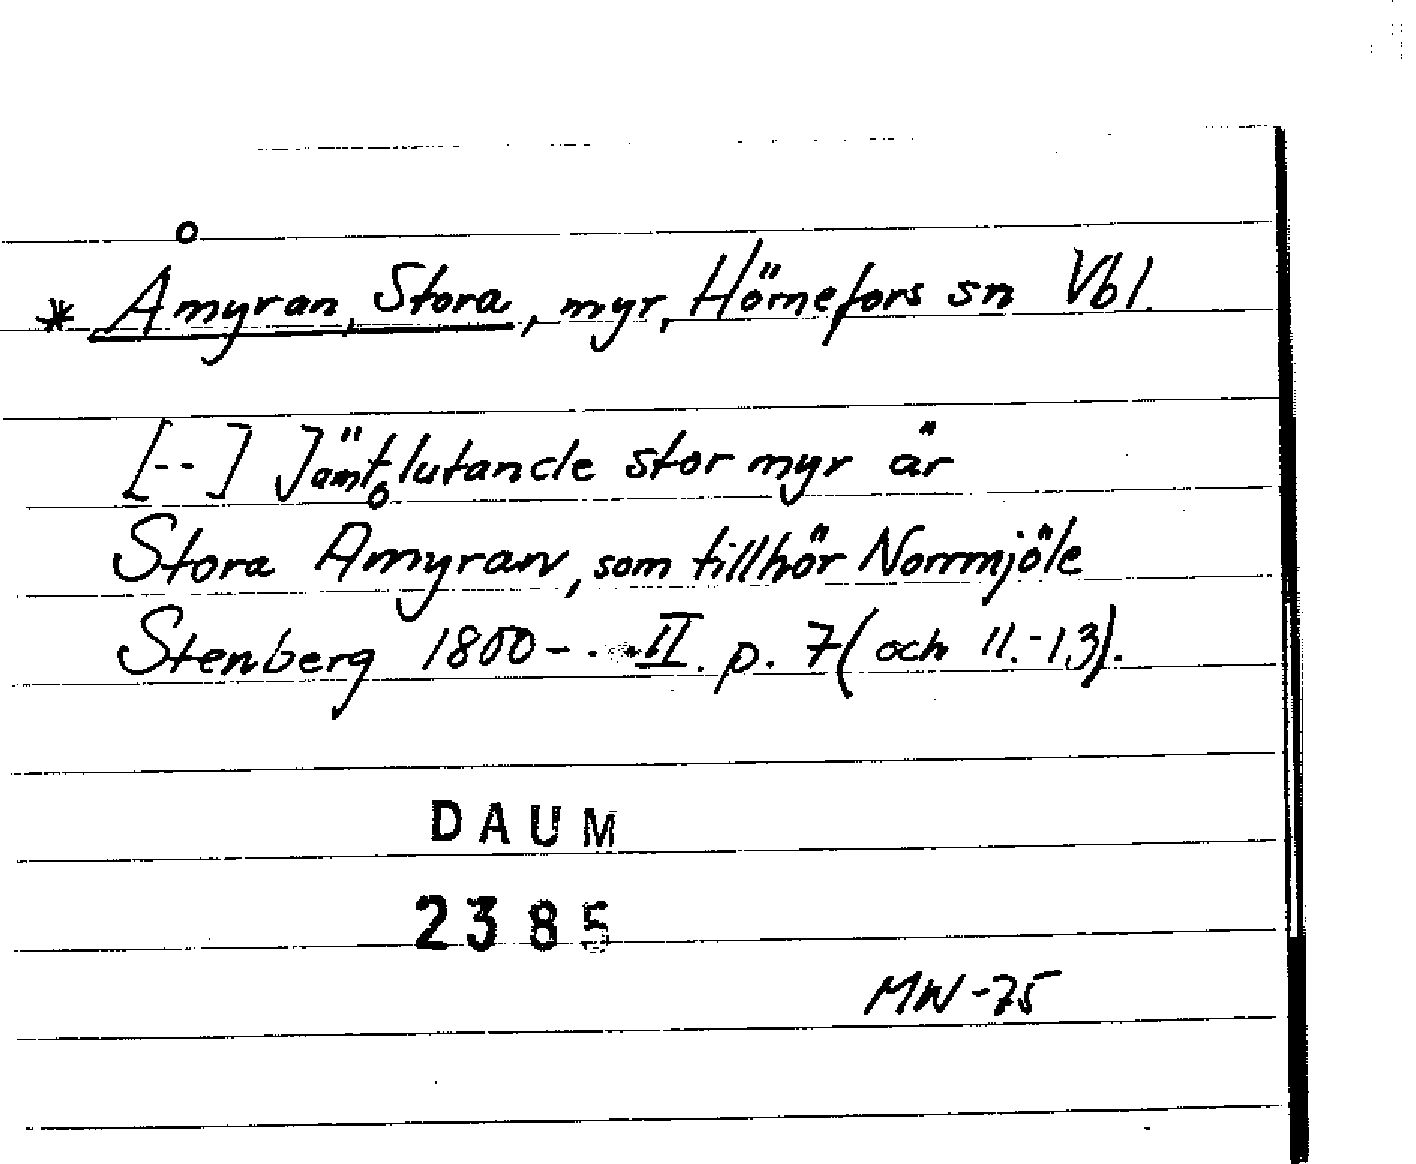 * Åmyran, Stora, myr, Hörnefors sn Vbl.
[--] Jämtlutande stor myr är
Stora Åmyran, som tillhör Norrmjöle
Stenberg 1800-..II. p. 7 (och 11.-13).
DAUM
2385
MW-75